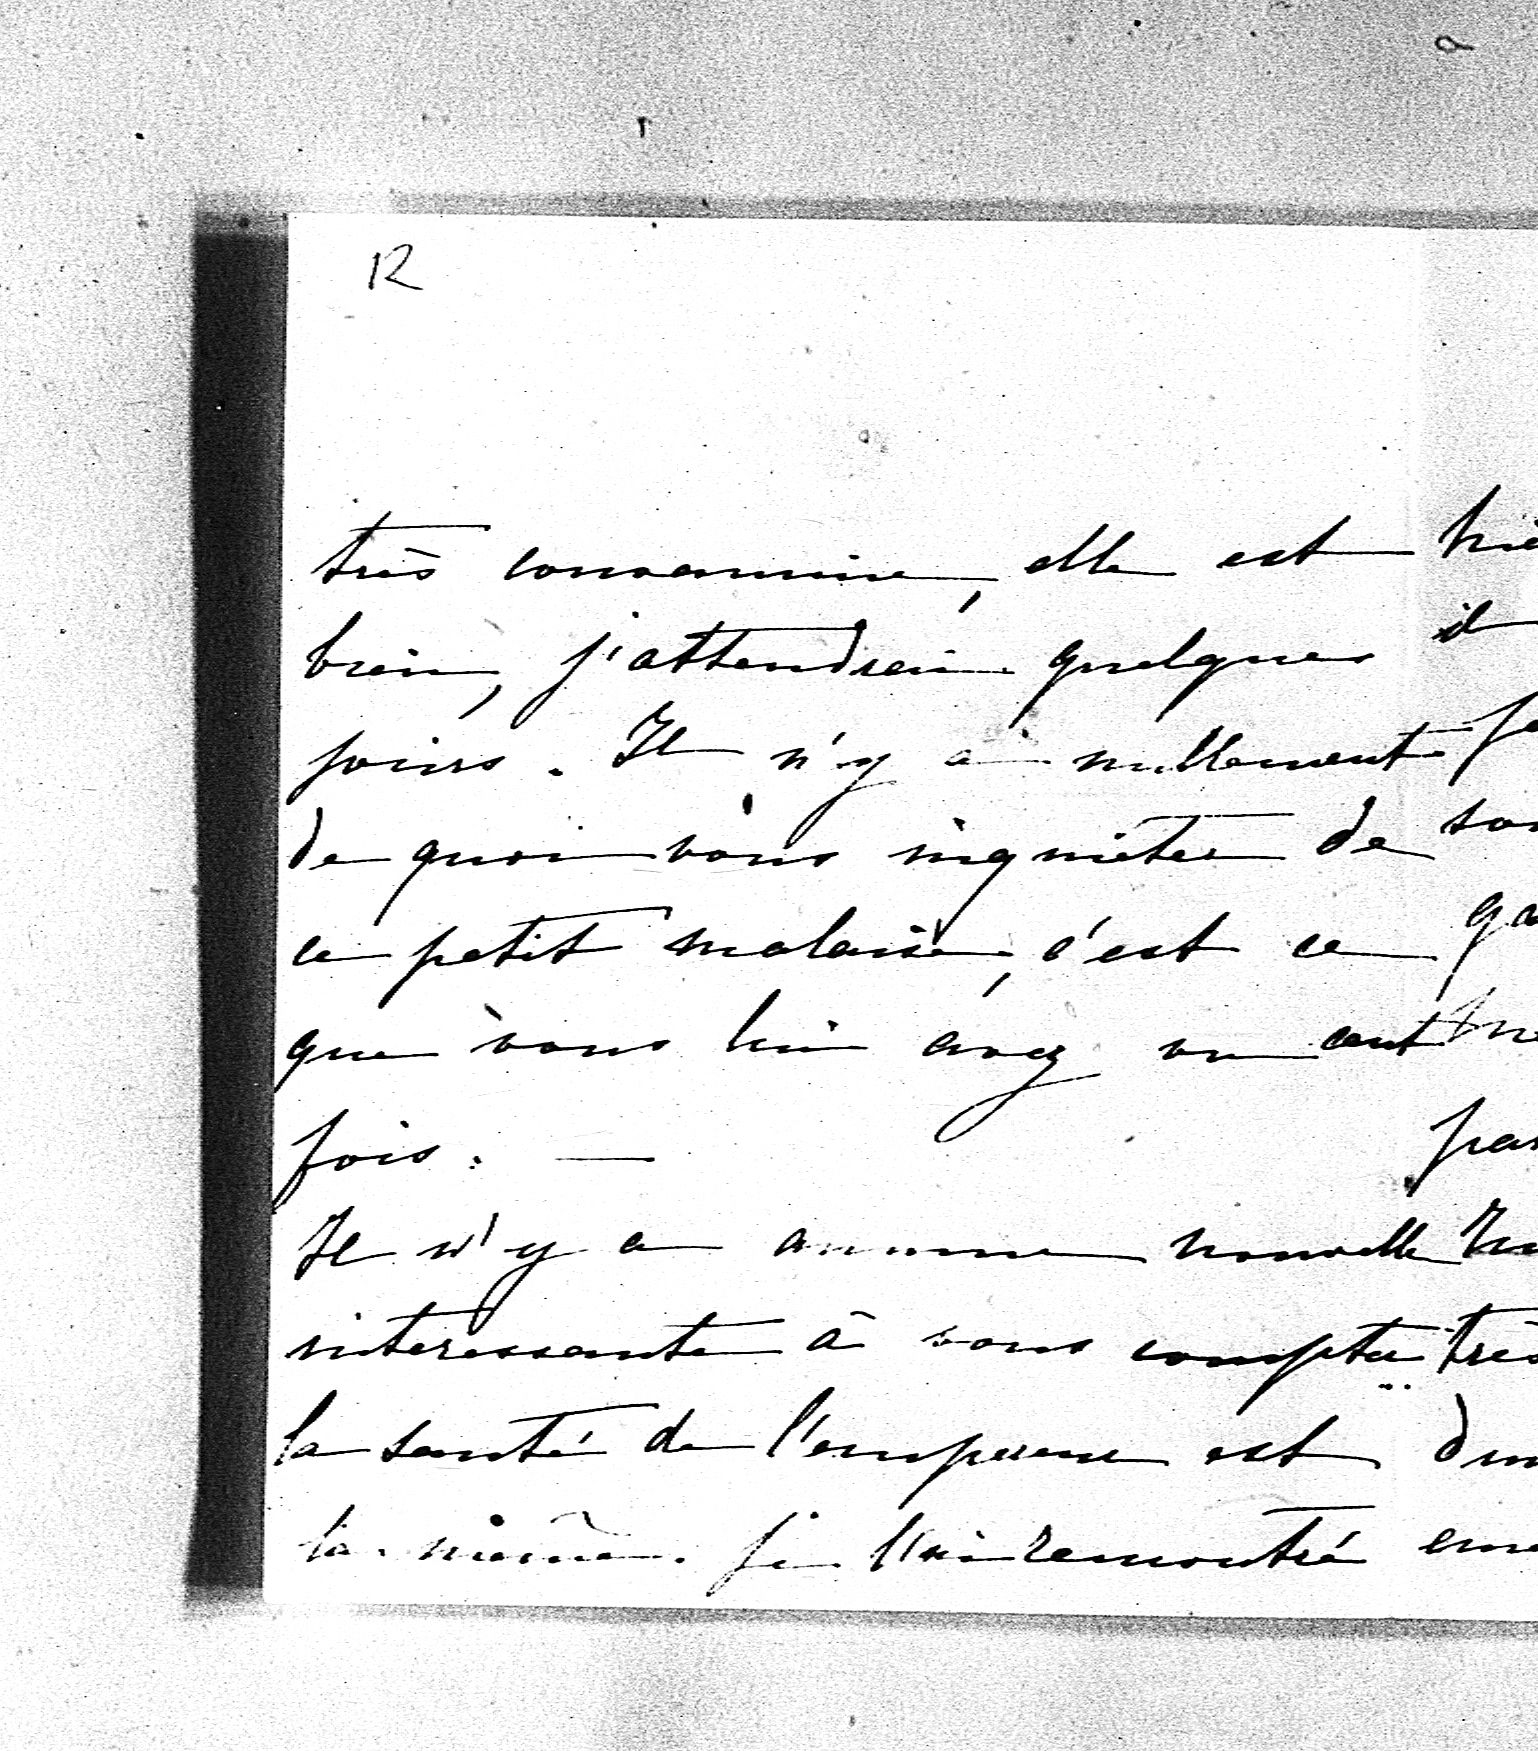 12
très convenue, elle est
bien, j'attendrai quelques
jours. Il n'y a nullement
de quoi vous inquiéter de
ce petit malaise, c'est ce
que vous lui avez vu cent
fois. —
Il n'y a aucune nouvelle
interessante à vous compter
la santé de l'empereur est
la même. Je l'ai remontré
il
par
très